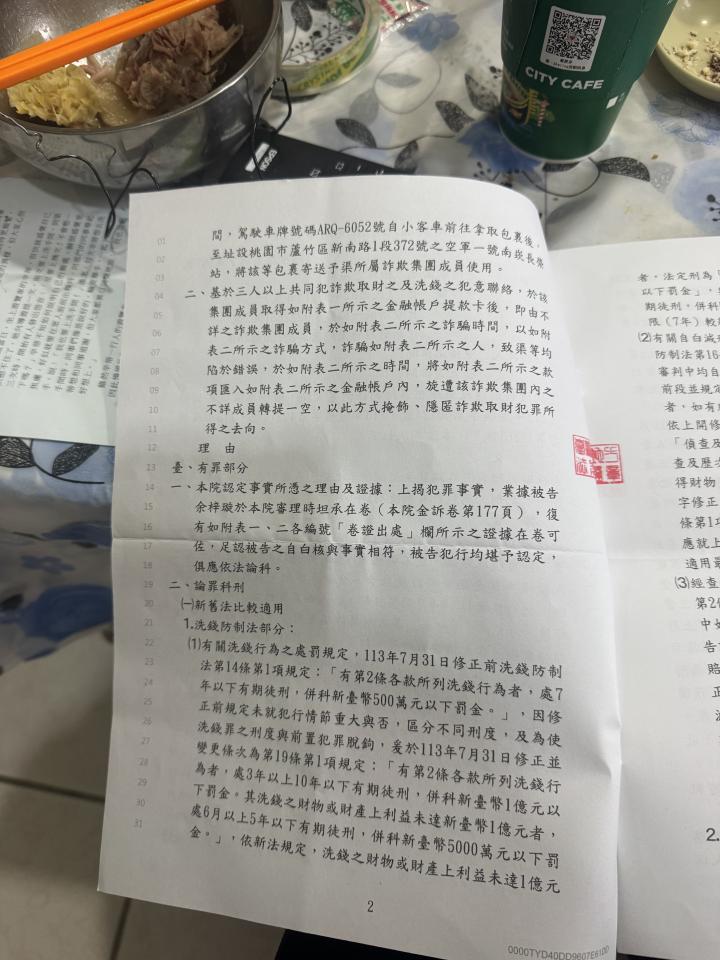 CITY CAFE
間，駕駛車牌號碼ARQ-6052號自小客車前往拿取包裹後，
至址設桃園市蘆竹區新南路1段372號之空軍一號南崁長榮
站，將該等包裹寄送予渠所屬詐欺集團成員使用。
二、基於三人以上共同犯詐欺取財之及洗錢之犯意聯絡，於該
集團成員取得如附表一所示之金融帳戶提款卡後，即由不
詳之詐欺集團成員，於如附表二所示之詐騙時間，以如附
表二所示之詐騙方式，詐騙如附表二所示之人，致渠等均
陷於錯誤，於如附表二所示之時間，將如附表二所示之款
項匯入如附表二所示之金融帳戶內，旋遭該詐欺集團內之
不詳成員轉提一空，以此方式掩飾、隱匿詐欺取財犯罪所
得之去向。
理 由
壹、有罪部分
一、本院認定事實所憑之理由及證據：上揭犯罪事實，業據被告
余梓璇於本院審理時坦承在卷（本院金訴卷第177頁），復
有如附表一、二各編號「卷證出處」欄所示之證據在卷可
佐，足認被告之自白核與事實相符，被告犯行均堪予認定，
俱應依法論科。
二、論罪科刑
㈠新舊法比較適用
1.洗錢防制法部分：
⑴有關洗錢行為之處罰規定，113年7月31日修正前洗錢防制
法第14條第1項規定：「有第2條各款所列洗錢行為者，處7
年以下有期徒刑，併科新臺幣500萬元以下罰金。」，因修
正前規定未就犯行情節重大與否，區分不同刑度，及為使
洗錢罪之刑度與前置犯罪脫鉤，爰於113年7月31日修正並
變更條次為第19條第1項規定：「有第2條各款所列洗錢行
為者，處3年以上10年以下有期徒刑，併科新臺幣1億元以
下罰金。其洗錢之財物或財產上利益未達新臺幣1億元者，
處6月以上5年以下有期徒刑，併科新臺幣5000萬元以下罰
金。」，依新法規定，洗錢之財物或財產上利益未達1億元
2
者，法定刑為
以下罰金」，
期徒刑，併科
限（7年）較
⑵有關自白減刑
防制法第16
審判中均自
前段並規定
者，如有
依上開修
「偵查及
查及歷次
得財物
字修正
條第1項
應就上
適用最
⑶經查
第2
中
告
賠
正
2.